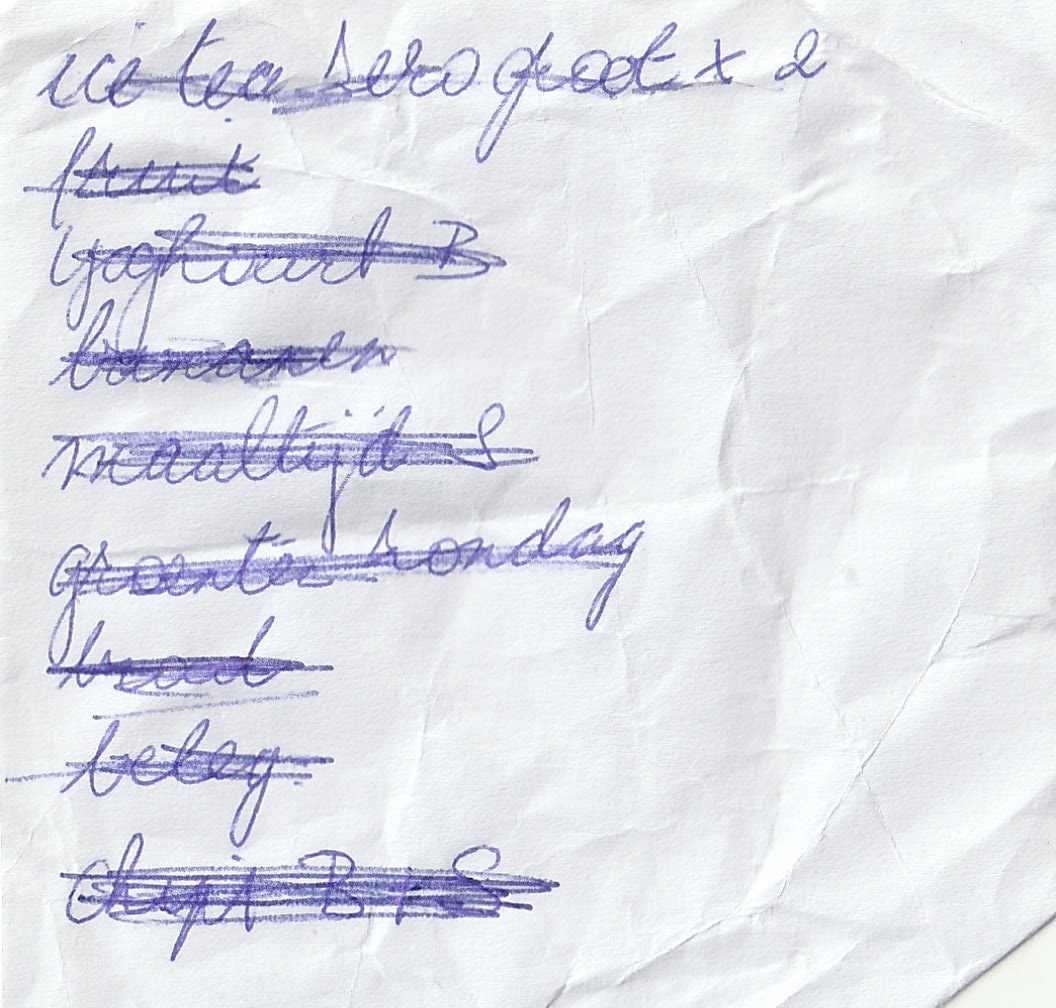 ice tea zero groot x 2
fruit
yoghourt B
bananen
maaltijd S
groenten zondag
brood
beleg
chips B + S